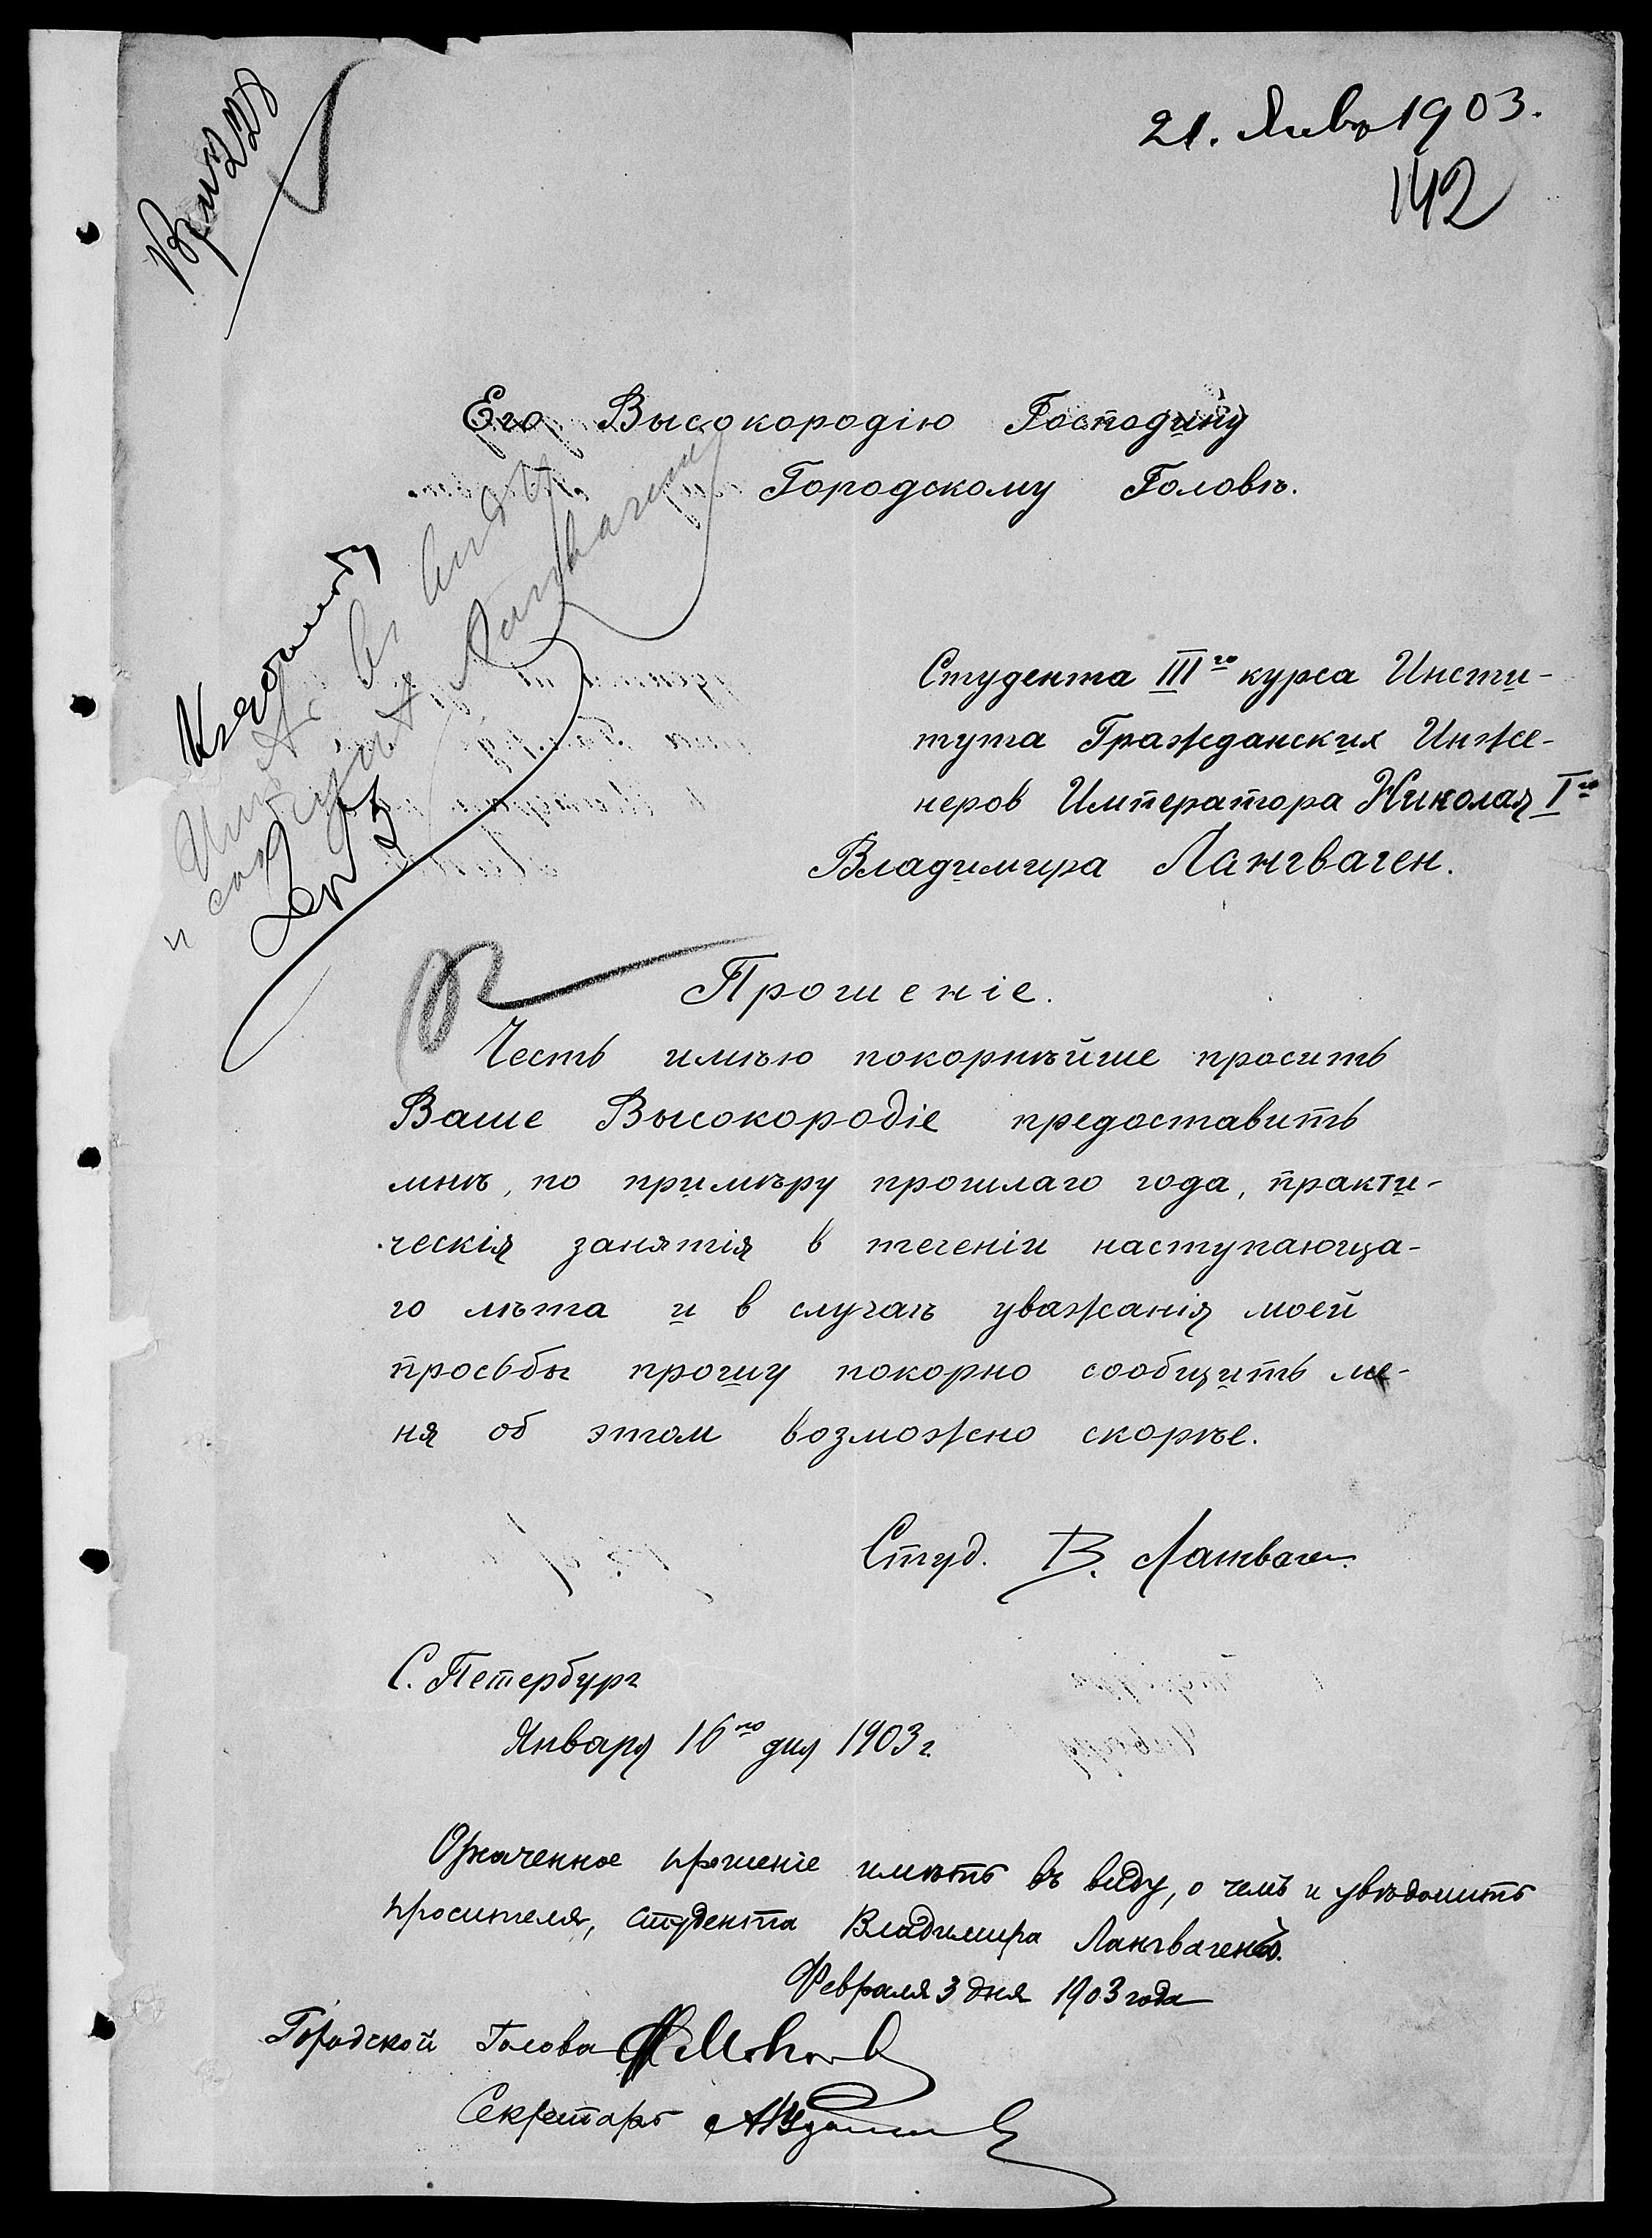 21. Янв 1903.
142
Его Высокородію Господину
Городскому Головѣ.
Студента III го курса Инсти-
тута Гражданских Инже-
неров Императора Николая I го
Владимира Лангваген.
Прошеніе.
Честь имѣю покорнѣйше просить
Ваше Высокородіе предоставить
мнѣ, по примѣру прошлаго года, практи-
ческія занятія в теченіи наступающа-
го лѣта и в случаѣ уважанія моей
просьбы прошу покорно сообщить ме-
ня об этом возможно скорѣе.
Студ. В. Лангваген.
С. Петербург
Января 16 го дня 1903 г.
Означенное прошеніе имѣть въ виду, о чемъ и увѣдомить
просителя, студента Владимира Лангвагенъ.
Февраля 3 дня 1903 года
Городской Голова
Секретарь